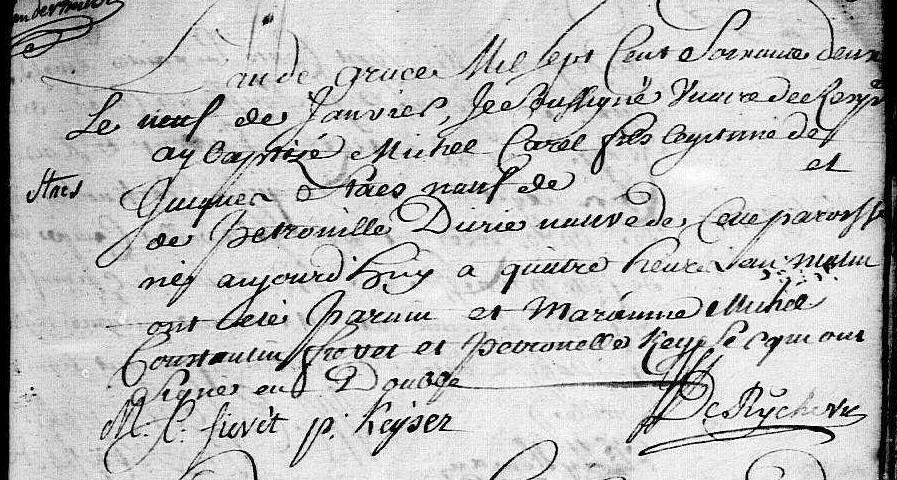 L'an de grace Mil sept Cent Soixante deux
Le neuf de Janvier, Je Soussigné Vicaire de
ay baptizé Michel Carel fils legitime de
Staes
Jacques Staes natif de et
de Petronille Durie native de Cette paroisse
néz aujourd'huy a quatre heures au matin
ont été Parain et Maréinne Michel
Constantin fievet et Petronelle Keyser qui ont
Signés en Double
M: C: fievét p: Keyser De Rycke